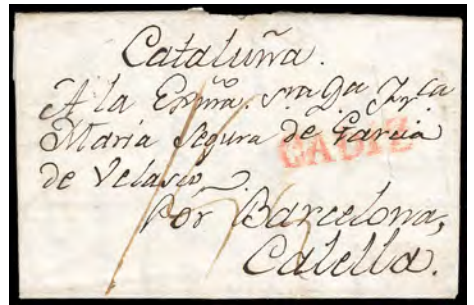 Cataluña.
A la Exma. Sra Da Frca
Maria Segura de Garcia
CADIZ
de Velasco
Por Barcelona,
Calella.